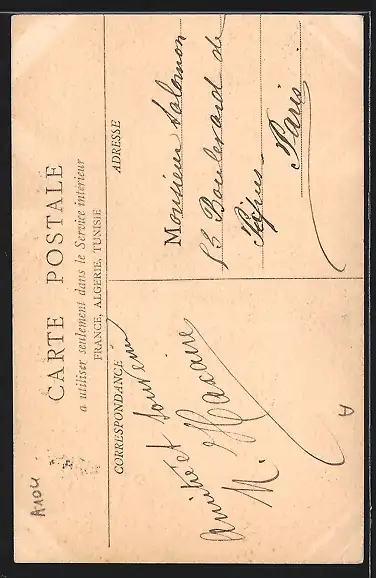 CARTE POSTALE
a utiliser seulement dans le Service intérieur
FRANCE, ALGERIE, TUNISIE
CORRESPONDANCE
Amitié et Souvenir
M.
ADRESSE
Monsieur Salomon
Boulevard de
Paris
A104
A